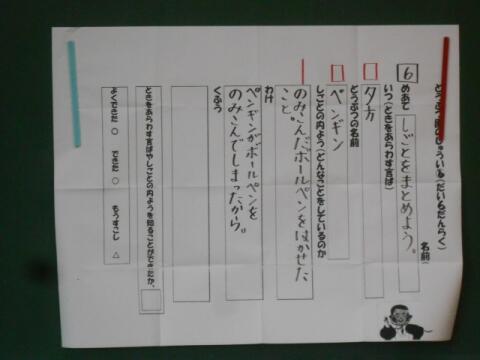 どうぶつ園のじゅうい⑥(だい6だんらく)
名前(
6
めあて しごとをまとめよう。
いつ(ときをあらわす言ば)
夕方
どうぶつの名前
ペンギン
しごとの内よう(どんなことをしているのか
のみこんだボールペンをはかせた
こと。
わけ
ペンギンがボールペンを
のみこんでしまったから。
くふう
ときをあらわす言ばやしごとの内ようを知ることができたか。
よくできた ○ できた ○ もうすこし △